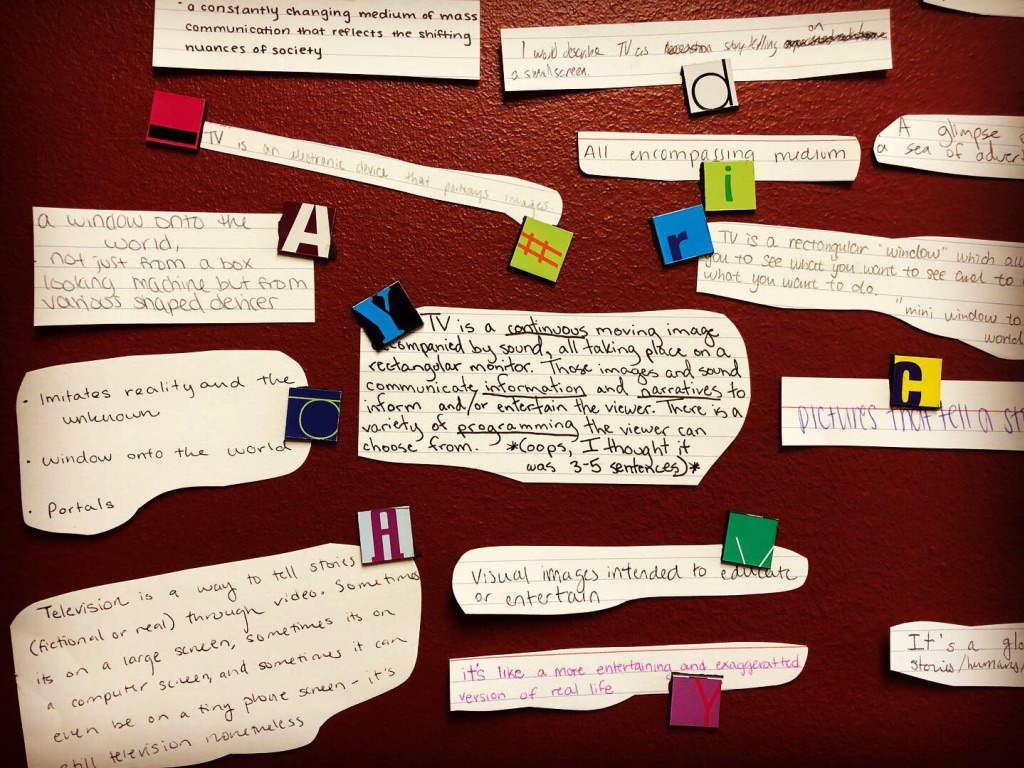 - a constantly changing medium of mass
communication that reflects the shifting
nuances of society
I would describe TV as story telling on
a small screen.
d
TV is an electronic device that portrays images.
#
All encompassing medium
i
A glimpse
a sea of
a window onto the
world,
- not just from a box
looking machine but from
various shaped devices
A
r
TV is a rectangular "window" which
you to see what you want to see and to
what you want to do.
"mini window to
world
Y
TV is a continuous moving image
accompanied by sound, all taking place on a
rectangular monitor. Those images and sound
communicate information and narratives to
inform and/or entertain the viewer. There is a
variety of programming the viewer can
choose from. *(oops, I thought it
was 3-5 sentences)*
C
pictures that tell a
• Imitates reality and the
unknown
• window onto the world
• Portals
O
A
Television is a way to tell stories
(fictional or real) through video. Sometimes
its on a large screen, sometimes its on
a computer screen, and sometimes it can
even be on a tiny phone screen - it's
still television nonetheless
Visual images intended to educate
or entertain
it's like a more entertaining and exaggeratted
version of real life
Y
It's a
stories/humans